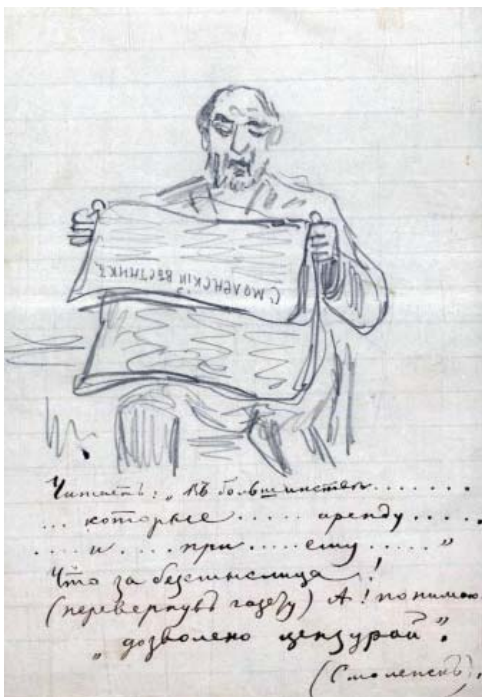 СМОЛЕНСКІЙ ВѢСТНИКЪ
Читаетъ: „Въ большинствѣ.......
... которые ..... аренду .....
.... и .... при ..... ему ..... "
Что за безсмыслица!
(перевернувъ газету) А! понимаю
„дозволено цензурой".
(Смоленскъ).